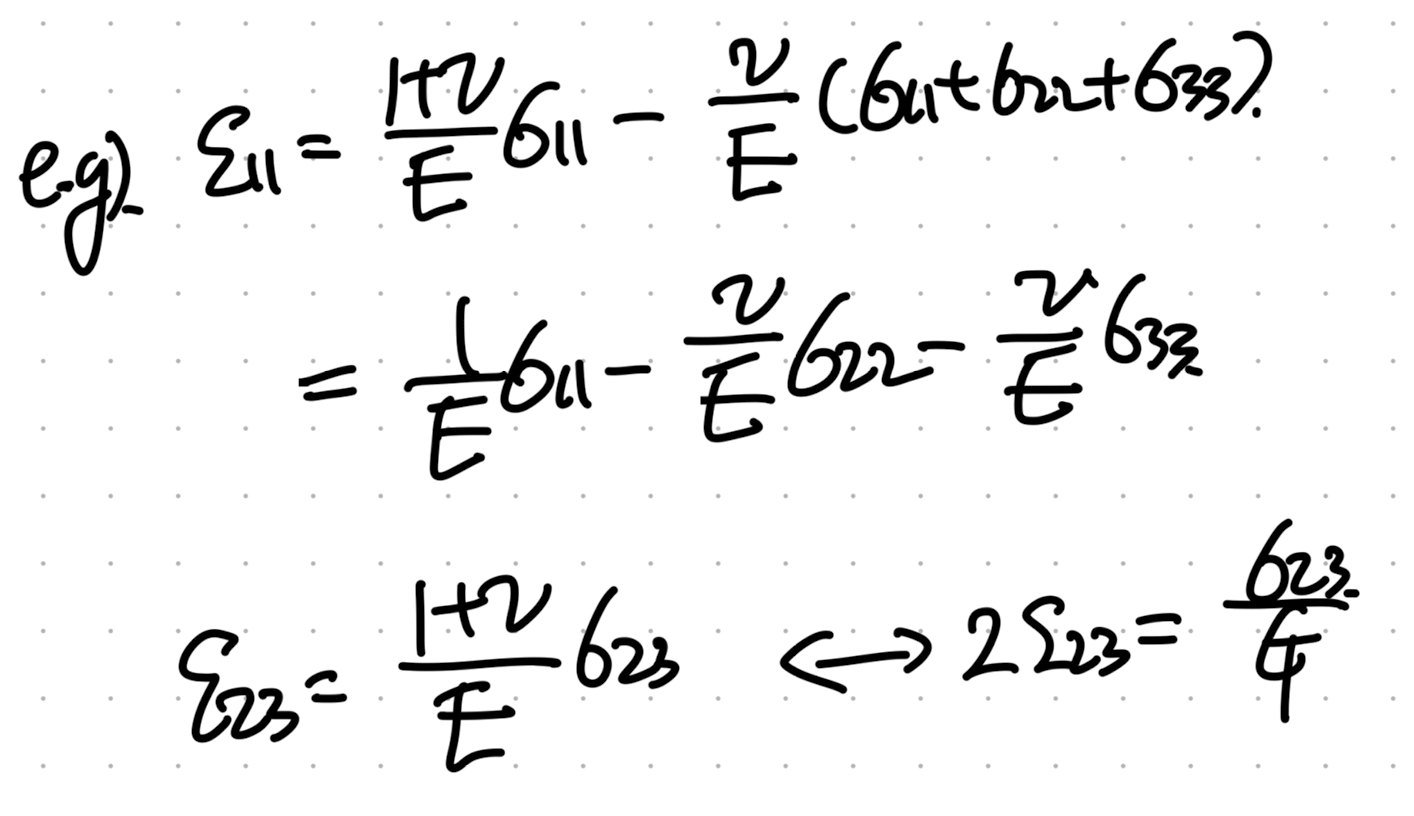 e.g). ε₁₁ = (1+ν)/E σ₁₁ − ν/E (σ₁₁+σ₂₂+σ₃₃).
= 1/E σ₁₁ − ν/E σ₂₂ − ν/E σ₃₃
ε₂₃ = (1+ν)/E σ₂₃ ⟷ 2ε₂₃ = σ₂₃/G